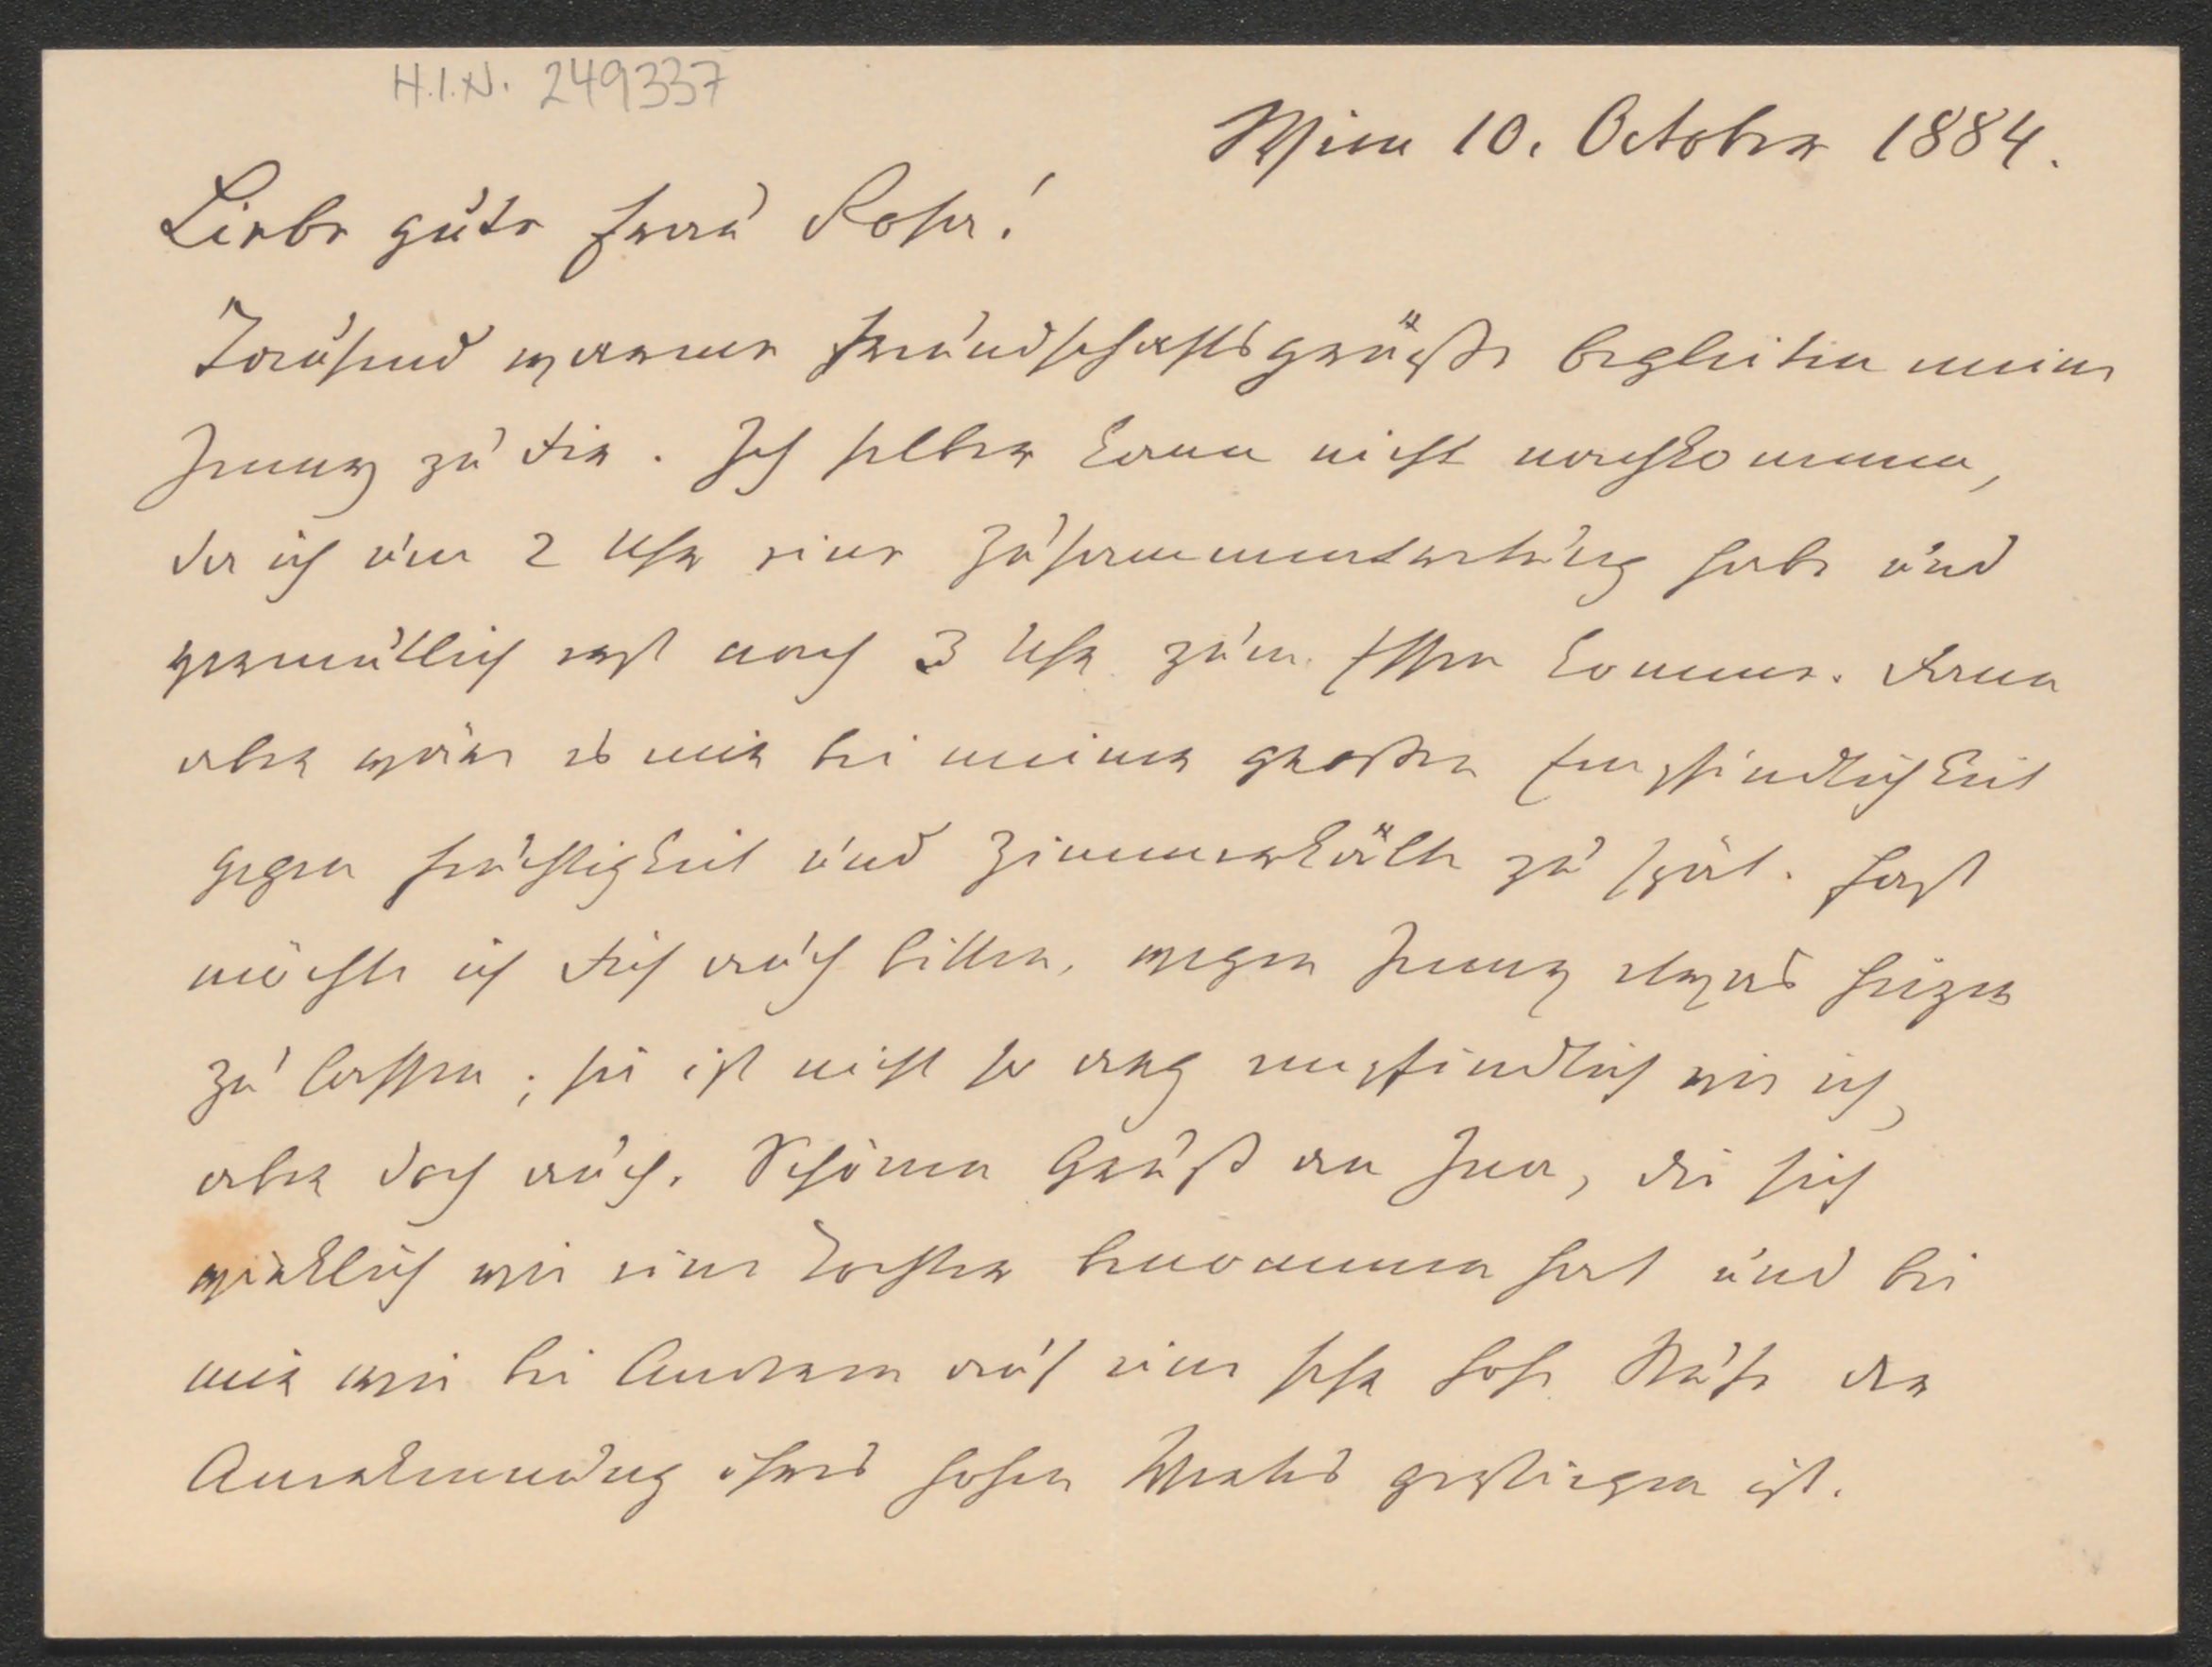 H.I.N. 249337
Wien 10. October 1884.
Liebe gute Frau Rosa!
Tausend warme Freundschaftsgrüße begleiten meine
Jenny zu Dir. Ich selber kann nicht nachkommen,
da ich um 2 Uhr eine Zusammentretung habe und
vermutlich erst nach 3 Uhr zum Essen komme. Dann
aber wäre es mir bei meiner großen Empfindlichkeit
gegen Feuchtigkeit und Zimmerkälte zu spät. Fast
möchte ich Dich auch bitten, wegen Jenny etwas heizen
zu lassen; sie ist nicht so arg empfindlich wie ich,
aber doch auch. Schönen Gruß an Ina, die sich
wirklich wie eine Tochter benommen hat und bei
mir wie bei Anderen auf eine sehr hohe Stufe der
Anerkennung ihres hohen Wertes gestiegen ist.